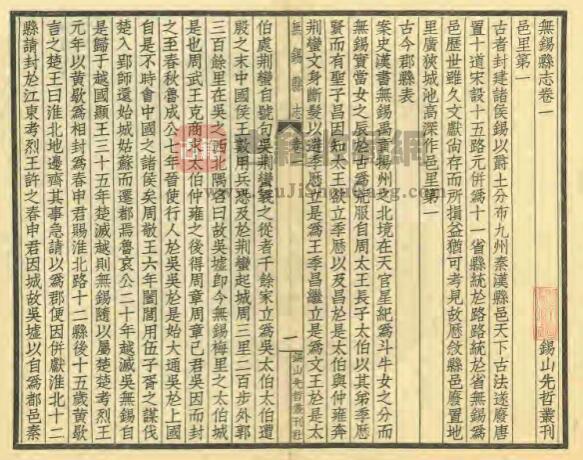 無錫縣志卷一
錫山先哲叢刊
邑里第一
古者封建諸侯錫以爵土分布九州秦漢縣邑天下古法遂廢唐
置十道宋設十五路元併爲十一省縣統於路路統於省無錫爲
邑歷世雖久文獻尙存而所損益猶可考見故歷敘縣邑廢置地
里廣狹城池高深作邑里第一
古今郡縣表
案史漢書無錫禹貢揚州之北境在天官星紀爲斗牛女之分而
無錫實當女之辰於古爲荒服自周太王長子太伯以其弟季歷
賢而有聖子昌因知太王欲立季歷以及昌於是太伯與仲雍奔
荆蠻文身斷髮以遜季歷立是爲王季昌繼立是爲文王於是太
無錫縣志
卷一
一
錫山先哲叢刊社
伯處荆蠻自號句吳荆蠻義之從者千餘家立爲吳太伯太伯遭
殷之末中國侯王數用兵恐及於荆蠻起城周三里二百步外郭
三百餘里在吳之西北隅名曰故吳墟卽今無錫梅里之太伯城
是也周武王克商求太伯仲雍之後得周章周章已君吳因而封
之至春秋魯成公七年晉使行人於吳吳於是始大通吳於上國
自是不時會中國之諸侯矣周敬王六年闔閭用伍子胥之謀伐
楚入郢師還始城姑蘇而遷都焉魯哀公二十年越滅吳無錫自
是歸于越國顯王三十五年楚滅越則無錫隨以屬楚楚考烈王
元年以黃歇爲相封爲春申君賜淮北路十二縣後十五歲黃歇
言之楚王曰淮北地邊齊其事急請以爲郡便因併獻淮北十二
縣請封於江東考烈王許之春申君因城故吳墟以自爲都邑秦